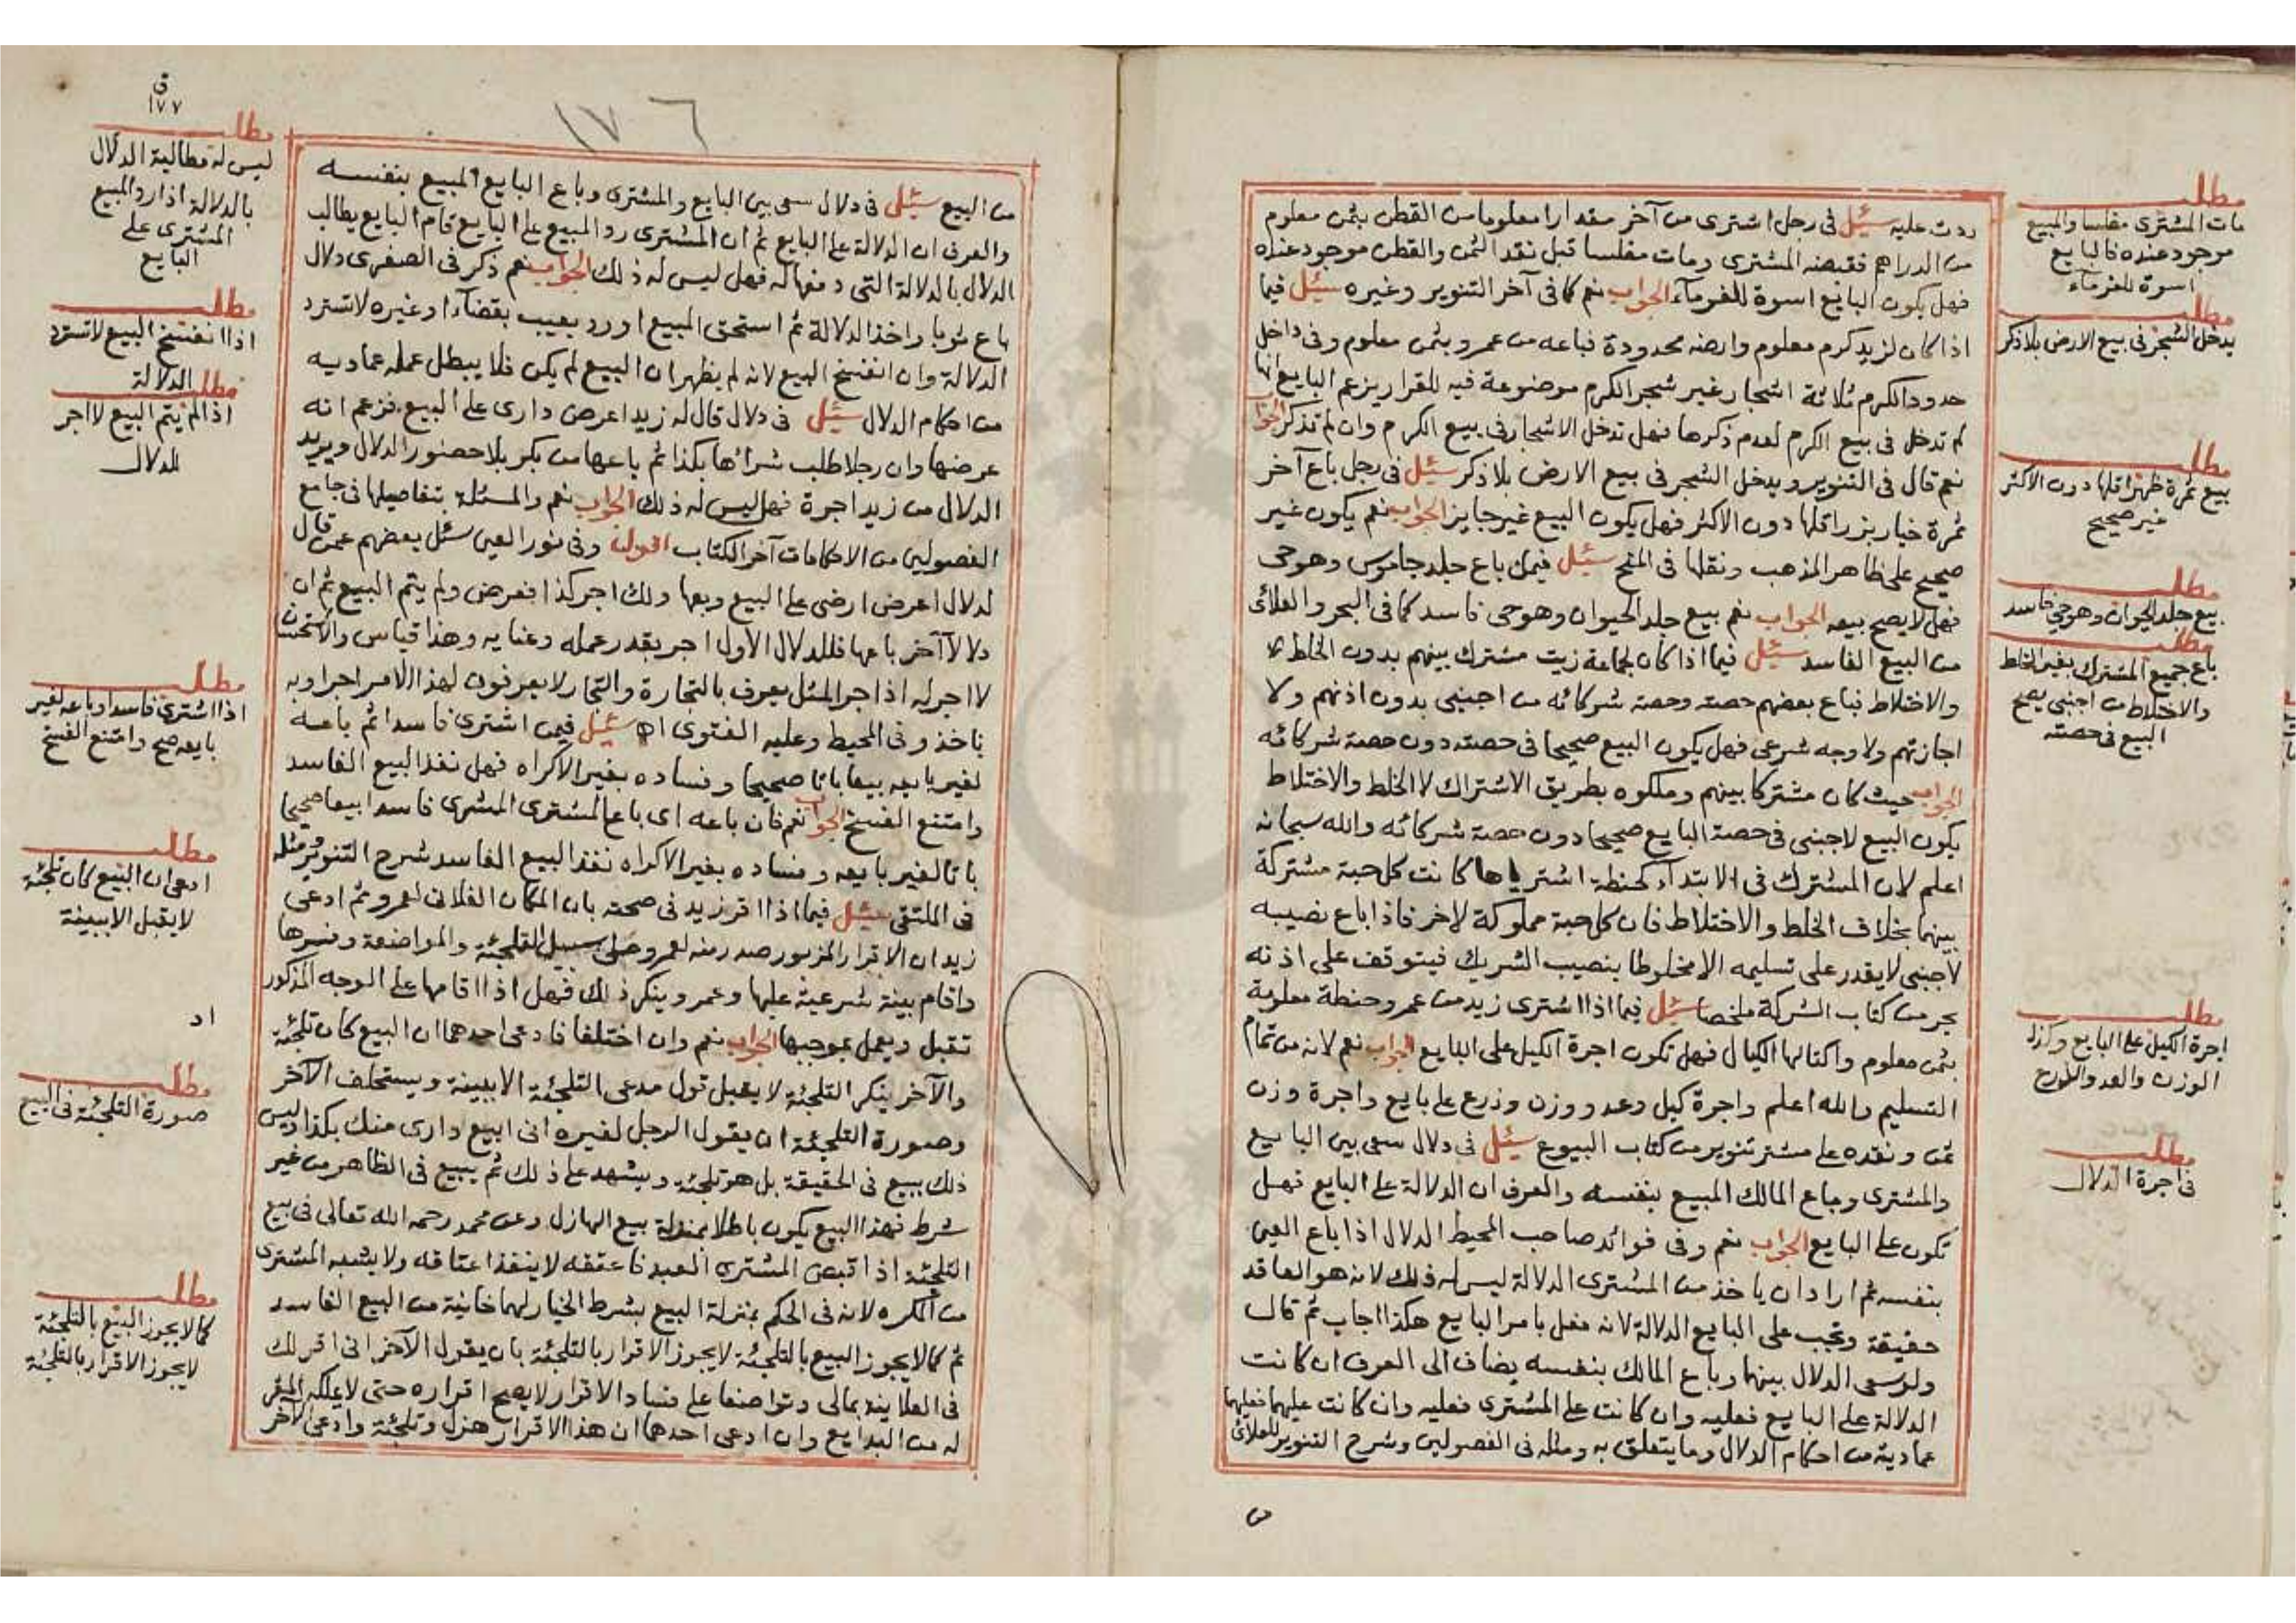 ردت عليه سئل في رجل اشترى من آخر مقدارا معلوما من القطن بثمن معلوم
من الدراهم فقبضه المشترى ومات مفلسا قبل نقد الثمن والقطن موجود عنده
فهل يكون البايع اسوة للغرماء الجواب نعم كما في آخر التنوير وغيره سئل فيما
اذا كان لزيد كرم معلوم وارضه محدودة فباعه من عمرو بثمن معلوم وفي داخل
حدود الكرم ثلاثة اشجار غير شجر الكرم موضوعة فيه للقرار يزعم البايع انها
لم تدخل في بيع الكرم لعدم ذكرها فهل تدخل الاشجار في بيع الكرم وان لم تذكر الجواب
نعم قال في التنوير ويدخل الشجر في بيع الارض بلا ذكر سئل في رجل باع آخر
ثمرة خيار بزر اقلها دون الاكثر فهل يكون البيع غير جايز الجواب نعم يكون غير
صحيح على ظاهر المذهب ونقلها في المنح سئل فيمن باع جلد جاموس وهو حي
فهل لا يصح بيعه الجواب نعم بيع جلد الحيوان وهو حي فاسد كما في البحر والعلائي
من البيع الفاسد سئل فيما اذا كان لجماعة زيت مشترك بينهم بدون الخلط
والاختلاط فباع بعضهم حصته وحصة شركائه من اجنبي بدون اذنهم ولا
اجازتهم ولا وجه شرعي فهل يكون البيع صحيحا في حصته دون حصة شركائه
الجواب حيث كان مشتركا بينهم وملكوه بطريق الاشتراك لا الخلط والاختلاط
يكون البيع لاجنبي في حصة البايع صحيحا دون حصة شركائه والله سبحانه
اعلم لان المشترك في الابتداء كحنطة اشترياها كانت كل حبة مشتركة
بينهما بخلاف الخلط والاختلاط فان كل حبة مملوكة لاخر فاذا باع نصيبه
لاجنبي لا يقدر على تسليمه الا مخلوطا بنصيب الشريك فيتوقف على اذنه
بحر من كتاب الشركة ملخصا سئل فيما اذا اشترى زيد من عمرو حنطة معلومة
بثمن معلوم واكتالها الكيال فهل تكون اجرة الكيل على البايع الجواب نعم لانه من تمام
التسليم والله اعلم واجرة كيل وعد ووزن وذرع على بايع واجرة وزن
ثمن ونقده على مشتر تنوير من كتاب البيوع سئل في دلال سعى بين البايع
والمشترى وباع المالك المبيع بنفسه والعرف ان الدلالة على البايع فهل
تكون على البايع الجواب نعم وفي فوائد صاحب المحيط الدلال اذا باع العين
بنفسه ثم اراد ان ياخذ من المشترى الدلالة ليس له ذلك لانه هو العاقد
حقيقة وتجب على البايع الدلالة لانه فعل بامر البايع هكذا اجاب ثم قال
ولو سعى الدلال بينهما وباع المالك بنفسه يضاف الى العرف ان كانت
الدلالة على البايع فعليه وان كانت على المشترى فعليه وان كانت عليهما فعليهما
عمادية من احكام الدلال وما يتعلق به ومثله في الفصولين وشرح التنوير للعلائي
من
مطلب
مات المشترى مفلسا والمبيع
موجود عنده فالبايع
اسوة للغرماء
مطلب
يدخل الشجر في بيع الارض بلا ذكر
مطلب
بيع ثمرة ظهر اقلها دون الاكثر
غير صحيح
مطلب
بيع جلد الحيوان وهو حي فاسد
مطلب
باع جميع المشترك بغير الخلط
والاختلاط من اجنبي يصح
البيع في حصته
مطلب
اجرة الكيل على البايع وكذا
الوزن والعد والذرع
مطلب
في اجرة الدلال
ق
١٧٧
١٧٦
من البيع سئل في دلال سعى بين البايع والمشترى وباع البايع المبيع بنفسه
والعرف ان الدلالة على البايع ثم ان المشترى رد المبيع على البايع قام البايع يطالب
الدلال بالدلالة التي دفعها له فهل ليس له ذلك الجواب نعم ذكر في الصغرى دلال
باع ثوبا واخذ الدلالة ثم استحق المبيع او رد بعيب بقضاء او غيره لا تسترد
الدلالة وان انفسخ البيع لانه لم يظهر ان البيع لم يكن فلا يبطل عمله عماديه
من احكام الدلال سئل في دلال قال له زيد اعرض داري على البيع فزعم انه
عرضها وان رجلا طلب شرائها بكذا ثم باعها من بكر بلا حضور الدلال ويريد
الدلال من زيد اجرة فهل ليس له ذلك الجواب نعم والمسئلة بتفاصيلها في جامع
الفصولين من الاحكامات آخر الكتاب اقول وفي نور العين سئل بعضهم عمن قال
لدلال اعرض ارضى على البيع وبعها ولك اجر كذا فعرض ولم يتم البيع ثم ان
دلالا آخر باعها فللدلال الاول اجر بقدر عمله وعنايه وهذا قياس والاستحسان
لا اجر له اذ اجر المثل يعرف بالتجارة والتجار لا يعرفون لهذا الامر اجرا وبه
ناخذ وفي المحيط وعليه الفتوى اه سئل فيمن اشترى فاسدا ثم باعه
لغير بايعه بيعا باتا صحيحا وفساده بغير الاكراه فهل نفذ البيع الفاسد
وامتنع الفسخ الجواب نعم فان باعه اى باع المشترى المشرى فاسدا بيعا صحيحا
باتا لغير بايعه وفساده بغير الاكراه نفذ البيع الفاسد شرح التنوير ومثله
في الملتقى سئل فيما اذا اقر زيد في صحته بان المكان الفلاني لعمرو ثم ادعى
زيد ان الاقرار المزبور صدر منه لعمرو على سبيل التلجئة والمواضعة وفسرها
واقام بينة شرعية عليها وعمرو ينكر ذلك فهل اذا اقامها على الوجه المذكور
تقبل ويعمل بموجبها الجواب نعم وان اختلفا فادعى احدهما ان البيع كان تلجئة
والآخر ينكر التلجئة لا يقبل قول مدعى التلجئة الا ببينة ويستحلف الآخر
وصورة التلجئة ان يقول الرجل لغيره انى ابيع دارى منك بكذا وليس
ذلك ببيع في الحقيقة بل هو تلجئة ويشهد على ذلك ثم يبيع في الظاهر من غير
شرط فهذا البيع يكون باطلا بمنزلة بيع الهازل وعن محمد رحمه الله تعالى في بيع
التلجئة اذا قبض المشترى العبد فاعتقه لا ينفذ اعتاقه ولا يشبه المشترى
من المكره لانه في الحكم بمنزلة البيع بشرط الخيار لهما خانية من البيع الفاسد
ثم كما لا يجوز البيع بالتلجئة لا يجوز الاقرار بالتلجئة بان يقول الآخر انى اقر لك
في العلانية بمالى وتواضعا على فساد الاقرار لا يصح اقراره حتى لا يملكه المقر
له من البدايع وان ادعى احدهما ان هذا الاقرار هزل وتلجئة وادعى الآخر
مطلب
ليس له مطالبة الدلال
بالدلالة اذا رد المبيع
المشترى على
البايع
مطلب
اذا انفسخ البيع لا تسترد
الدلالة
مطلب
اذا لم يتم البيع لا اجر
للدلال
مطلب
اذا اشترى فاسدا وباعه لغير
بايعه صح وامتنع الفسخ
مطلب
ادعى ان البيع كان تلجئة
لا يقبل الا ببينة
اد
مطلب
صورة التلجئة في البيع
مطلب
كما لا يجوز البيع بالتلجئة
لا يجوز الاقرار بالتلجئة